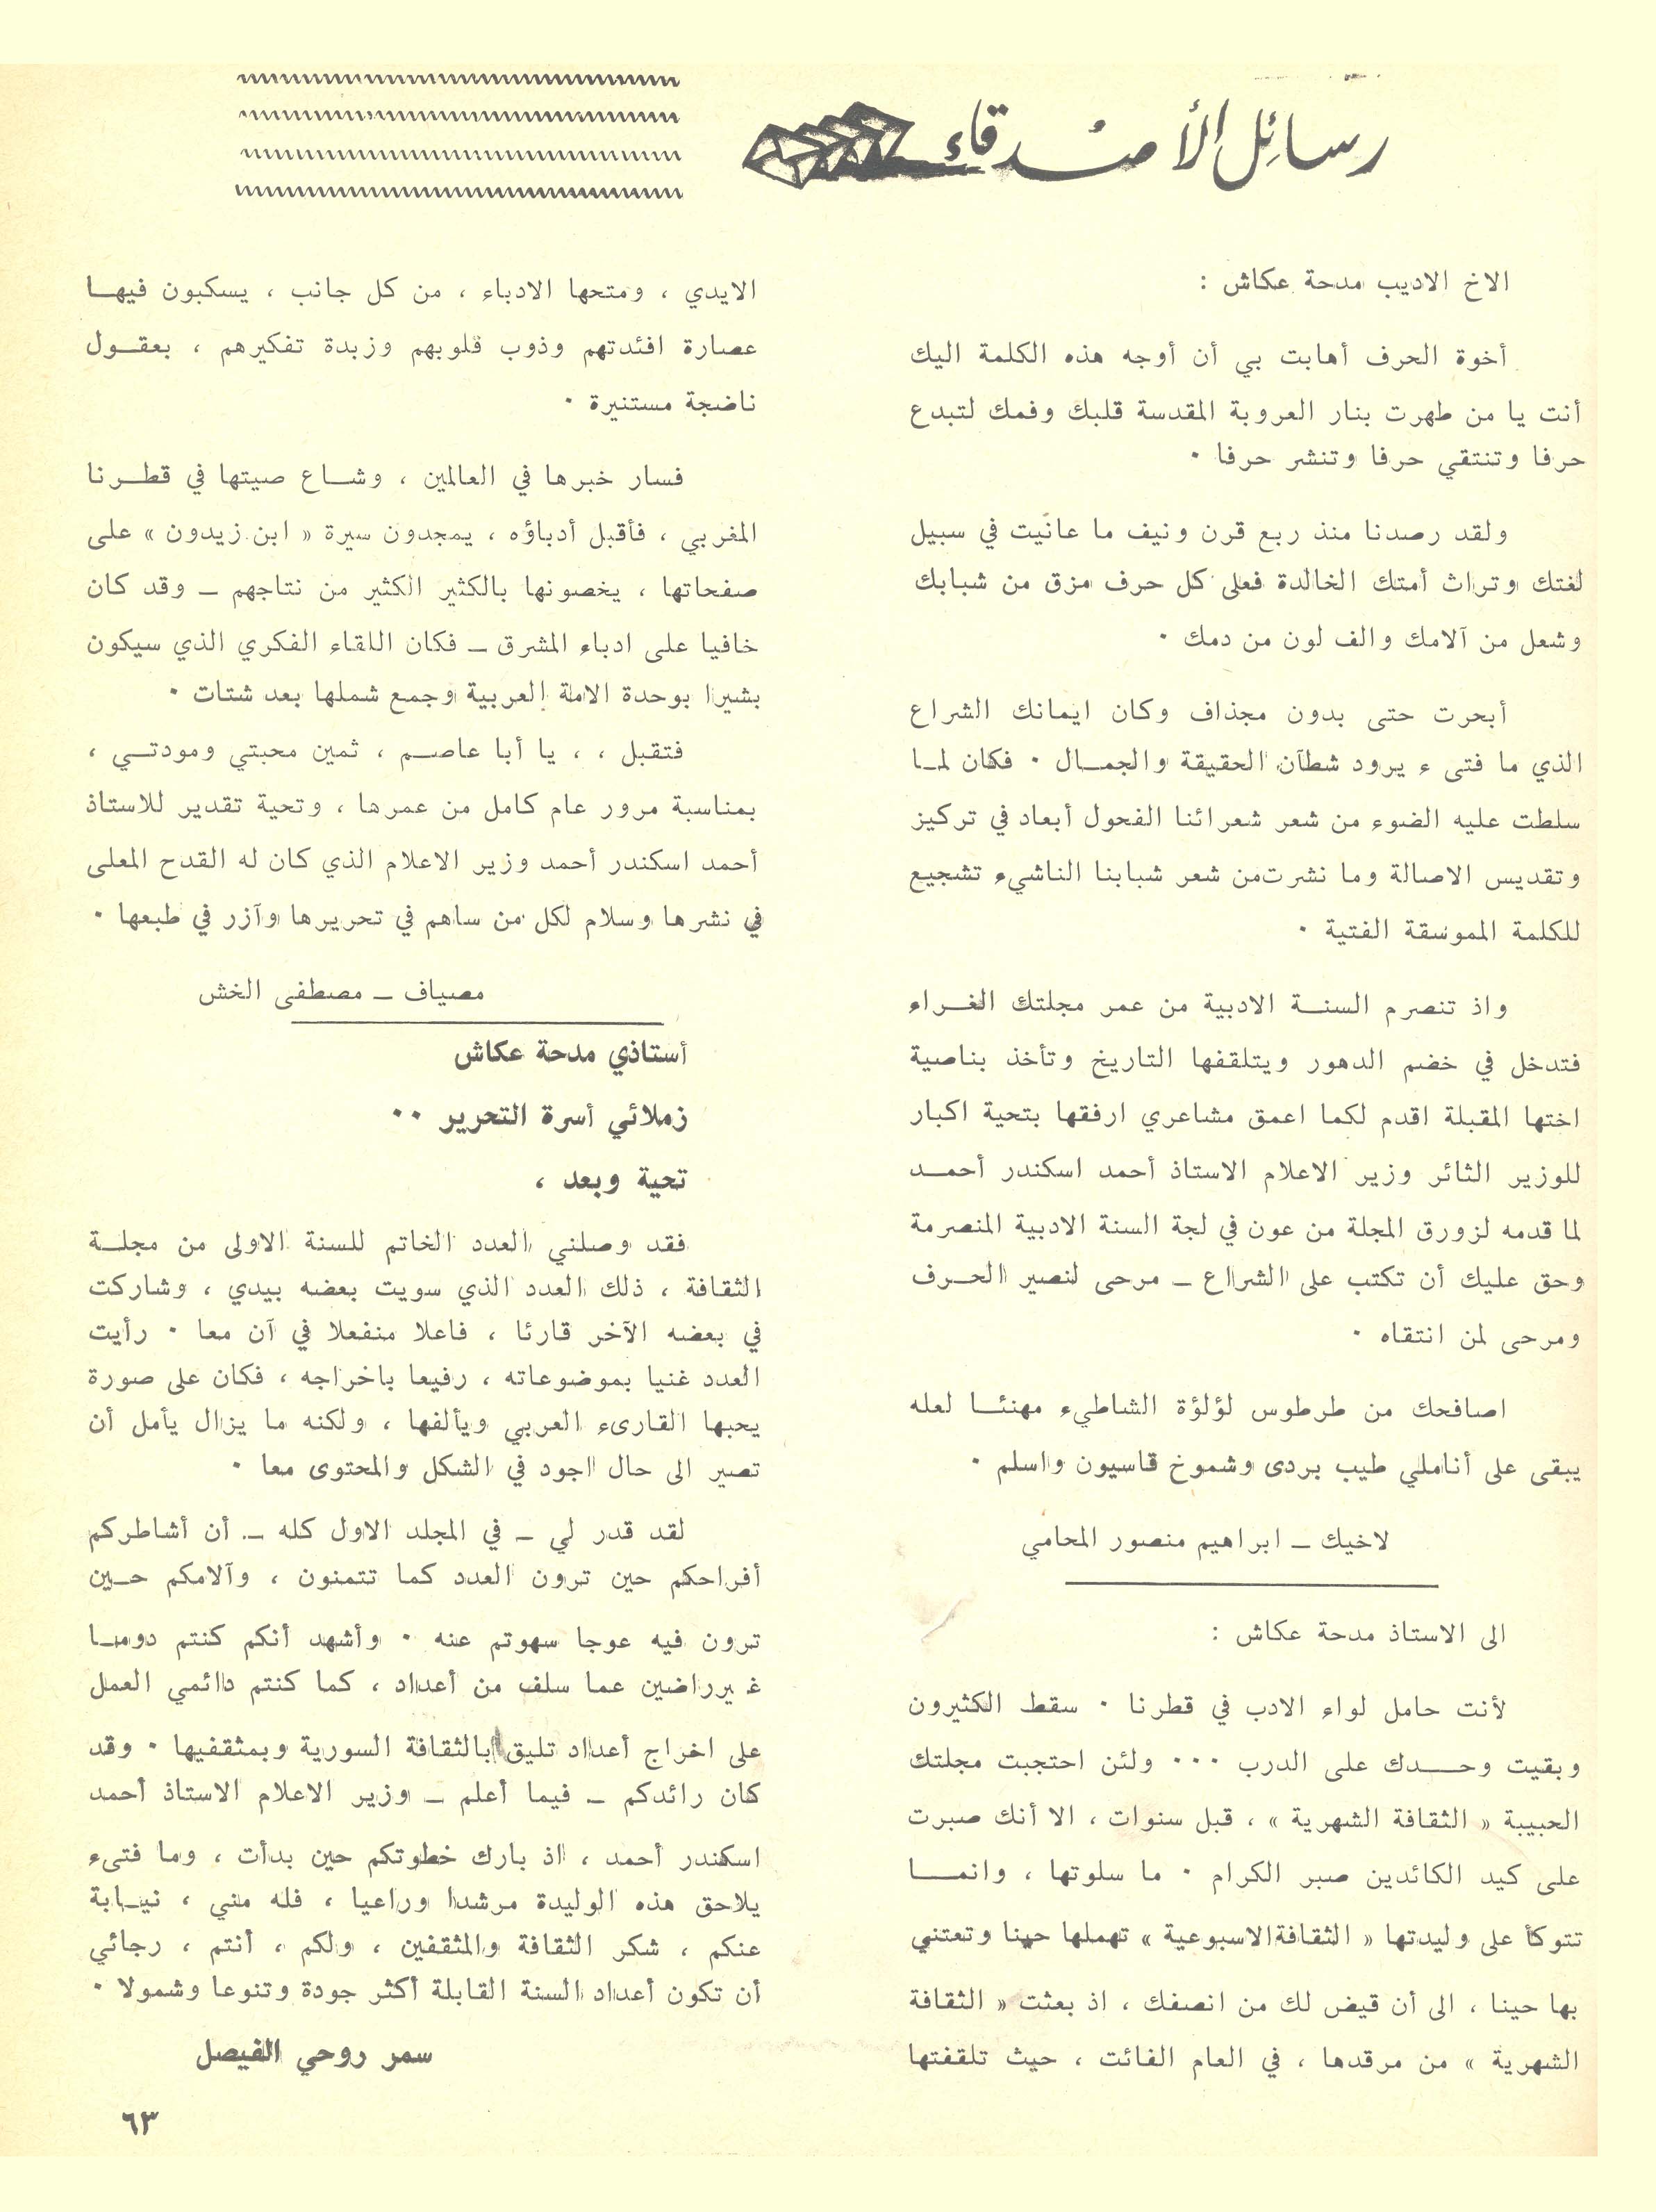 رسائل الأصدقاء
الاخ الاديب مدحة عكاش :
أخوة الحرف أهابت بي أن أوجه هذه الكلمة اليك
أنت يا من طهرت بنار العروبة المقدسة قلبك وفمك لتبدع
حرفا وتنتقي حرفا وتنشر حرفا ٠
ولقد رصدنا منذ ربع قرن ونيف ما عانيت في سبيل
لغتك وتراث أمتك الخالدة فعلى كل حرف مزق من شبابك
وشعل من آلامك والف لون من دمك ٠
أبحرت حتى بدون مجذاف وكان ايمانك الشراع
الذي ما فتىء يرود شطآن الحقيقة والجمــال ٠ فكان لمــا
سلطت عليه الضوء من شعر شعرائنا الفحول أبعاد في تركيز
وتقديس الاصالة وما نشرت من شعر شبابنا الناشيء تشجيع
للكلمة الموسقة الفتية ٠
واذ تنصرم السنــة الادبية من عمر مجلتك الغــراء
فتدخل في خضم الدهور ويتلقفها التاريخ وتأخذ بناصية
اختها المقبلة اقدم لكما اعمق مشاعري ارفقها بتحية اكبار
للوزير الثائر وزير الاعلام الاستاذ أحمد اسكندر أحمــد
لما قدمه لزورق المجلة من عون في لجة السنة الادبية المنصرمة
وحق عليك أن تكتب على الشراع ــ مرحى لنصير الحــرف
ومرحى لمن انتقاه ٠
اصافحك من طرطوس لؤلؤة الشاطيء مهنئــا لعله
يبقى على أناملي طيب بردى وشموخ قاسيون واسلم ٠
لاخيك ــ ابراهيم منصور المحامي
الى الاستاذ مدحة عكاش :
لأنت حامل لواء الادب في قطرنا ٠ سقط الكثيرون
وبقيت وحــــدك على الدرب ٠٠٠ ولئن احتجبت مجلتك
الحبيبة « الثقافة الشهرية » ، قبل سنوات ، الا أنك صبرت
على كيد الكائدين صبر الكرام ٠ ما سلوتها ، وانمــــا
تتوكأ على وليدتها « الثقافة الاسبوعية » تهملها حينا وتعتني
بها حينا ، الى أن قيض لك من انصفك ، اذ بعثت « الثقافة
الشهرية » من مرقدها ، في العام الفائت ، حيث تلقفتها
الايدي ، ومتحها الادباء ، من كل جانب ، يسكبون فيهــا
عصارة افئدتهم وذوب قلوبهم وزبدة تفكيرهم ، بعقــول
ناضجة مستنيرة ٠
فسار خبرها في العالمين ، وشــاع صيتها في قطــرنا
المغربي ، فأقبل أدباؤه ، يمجدون سيرة « ابن زيدون » على
صفحاتها ، يخصونها بالكثير الكثير من نتاجهم ــ وقد كان
خافيا على ادباء المشرق ــ فكان اللقاء الفكري الذي سيكون
بشيرا بوحدة الامة العربية وجمع شملها بعد شتات ٠
فتقبل ، ، يا أبا عاصــم ، ثمين محبتي ومودتــي ،
بمناسبة مرور عام كامل من عمرها ، وتحية تقدير للاستاذ
أحمد اسكندر أحمد وزير الاعلام الذي كان له القدح المعلى
في نشرها وسلام لكل من ساهم في تحريرها وآزر في طبعها ٠
مصياف ــ مصطفى الخش
أستاذي مدحة عكاش
زملائي أسرة التحرير ٠٠
تحية وبعد ،
فقد وصلني العدد الخاتم للسنة الاولى من مجلــة
الثقافة ، ذلك العدد الذي سويت بعضه بيدي ، وشاركت
في بعضه الآخر قارئا ، فاعلا منفعلا في آن معا ٠ رأيت
العدد غنيا بموضوعاته ، رفيعا باخراجه ، فكان على صورة
يحبها القارىء العربي ويألفها ، ولكنه ما يزال يأمل أن
تصير الى حال اجود في الشكل والمحتوى معا ٠
لقد قدر لي ــ في المجلد الاول كله ــ أن أشاطركم
أفراحكم حين ترون العدد كما تتمنون ، وآلامكم حــين
ترون فيه عوجا سهوتم عنه ٠ وأشهد أنكم كنتم دومــا
غير راضين عما سلف من أعداد ، كما كنتم دائمي العمل
على اخراج أعداد تليق بالثقافة السورية وبمثقفيها ٠ وقد
كان رائدكم ــ فيما أعلم ــ وزير الاعلام الاستاذ أحمد
اسكندر أحمد ، اذ بارك خطوتكم حين بدأت ، وما فتىء
يلاحق هذه الوليدة مرشدا وراعيا ، فله مني ، نيــابة
عنكم ، شكر الثقافة والمثقفين ، ولكم ، أنتم ، رجائي
أن تكون أعداد السنة القابلة أكثر جودة وتنوعا وشمولا ٠
سمر روحي الفيصل
٦٣